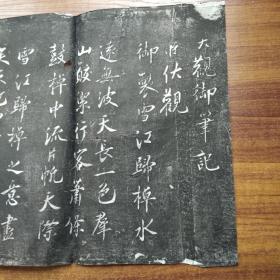 大觀御筆記
臣伏觀
御製雪江歸棹水
遠無波天長一色羣
山皎潔行客蕭條
鼓棹中流片帆天際
雪江歸棹之意盡